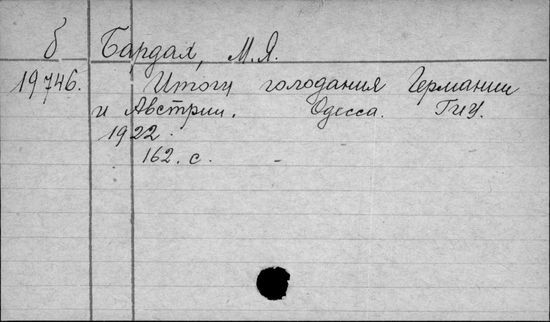 б Бардах, М.Я.
19746. Итоги голодания Германии
и Австрии. Одесса. ГИУ.
1922.
162. с. -